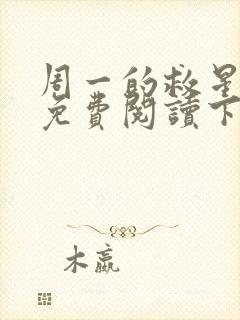 周一的救星
免費閱讀下
木嬴